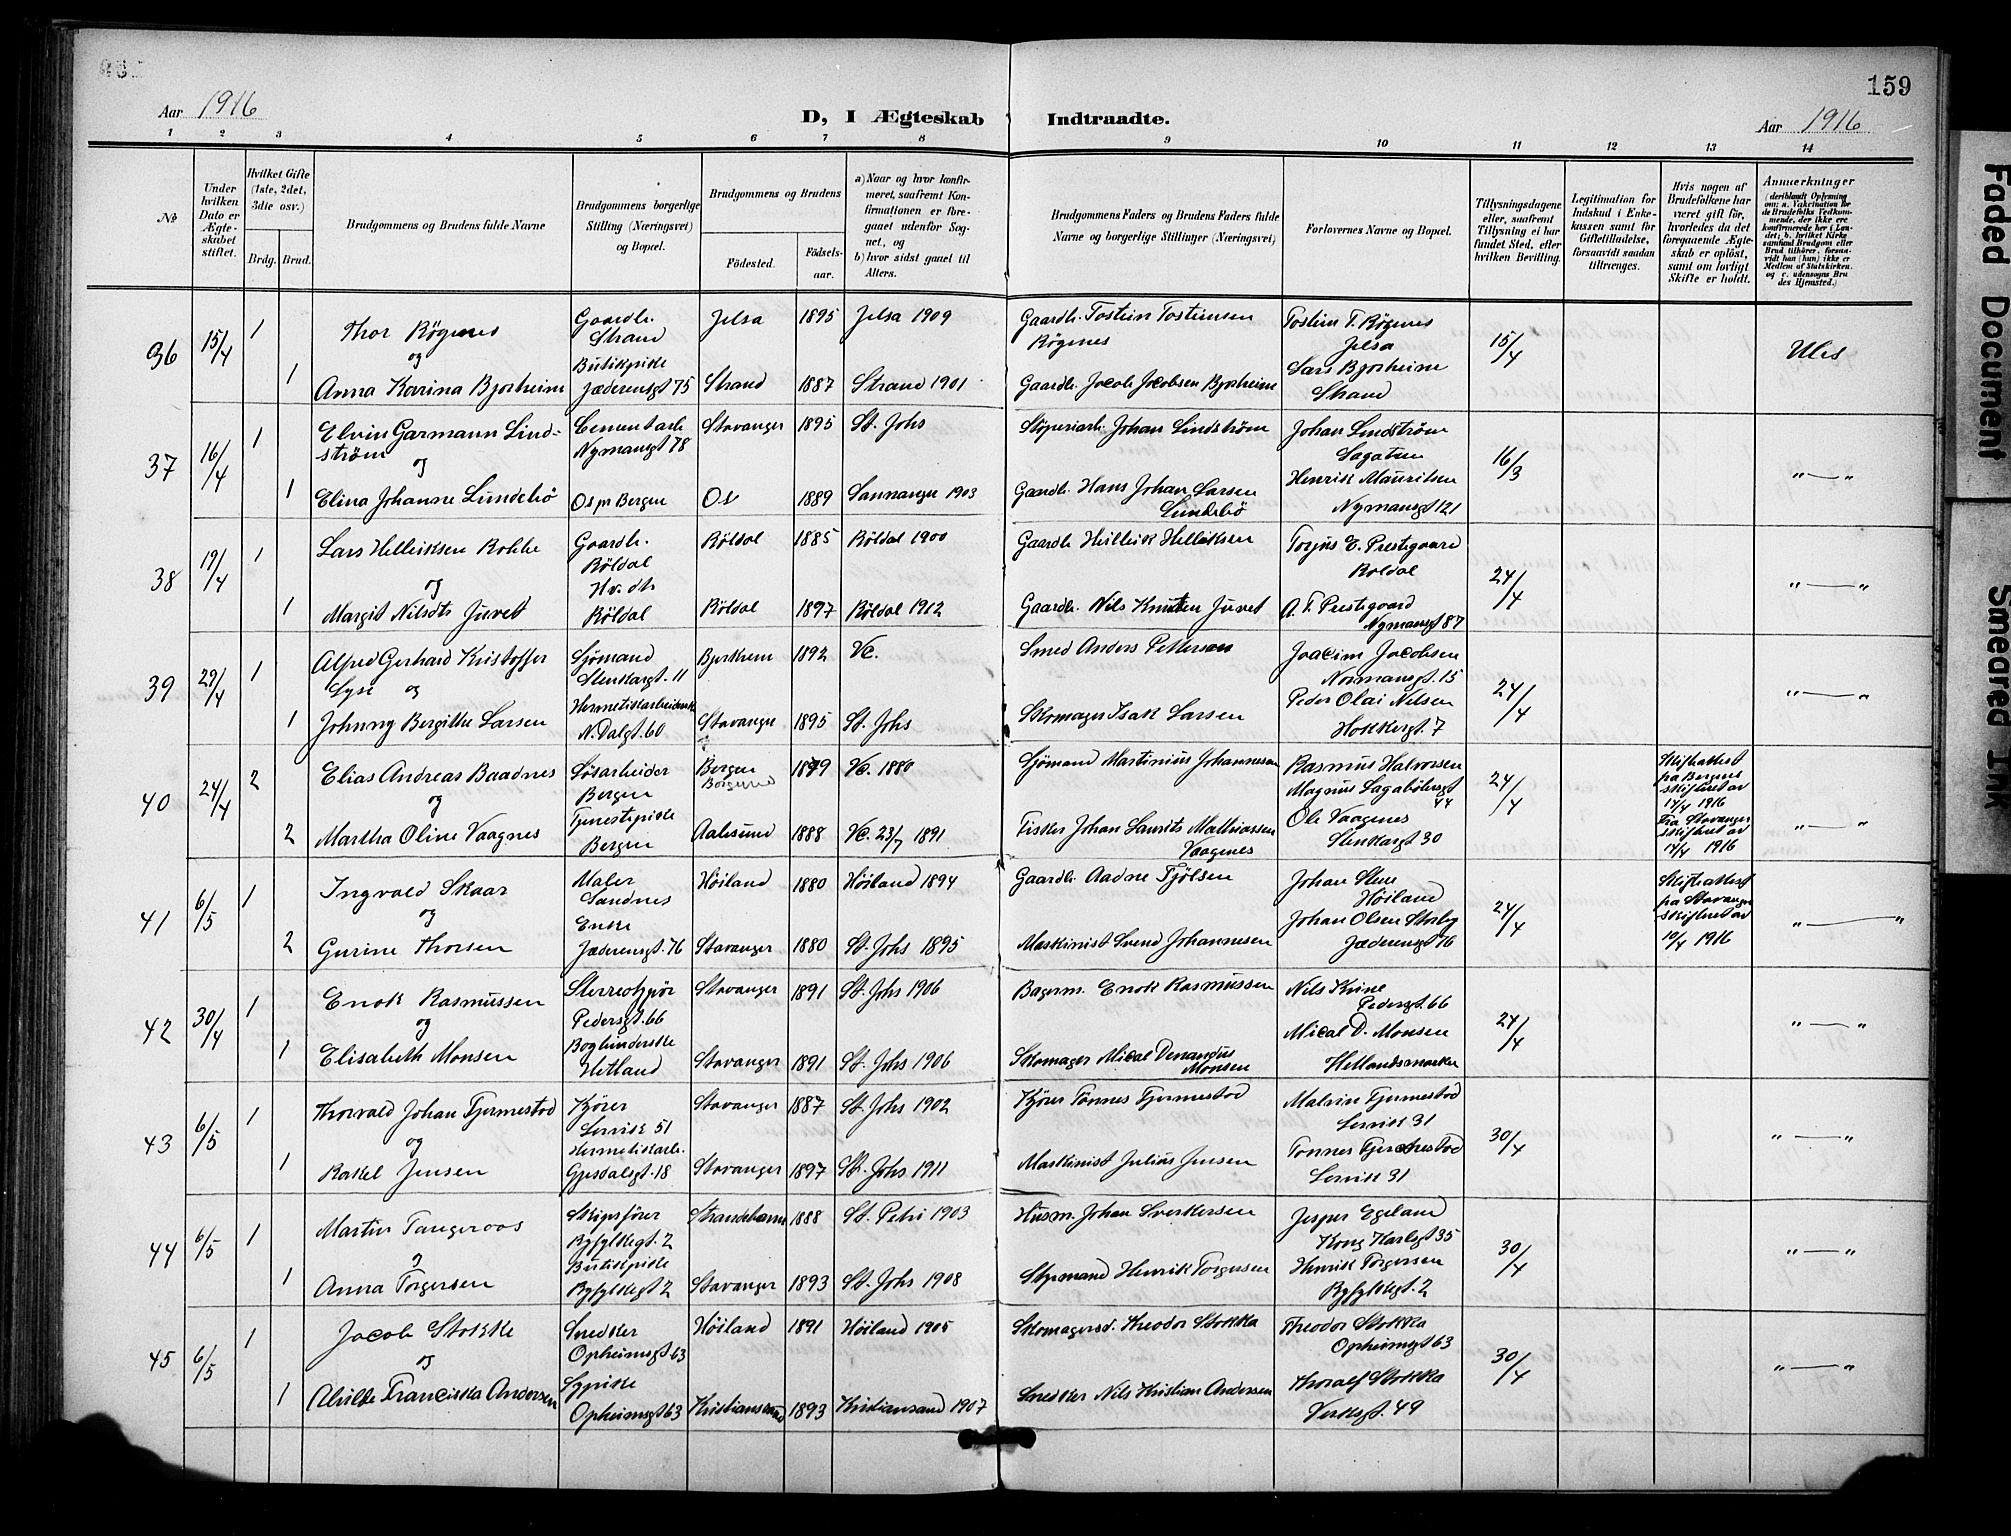 159
Aar 1916
D, I Ægteskab Indtraadte.
Aar 1916
1 2 3 4 5 6 7 8 9 10 11 12 13 14
№
Under hvilken Dato er Ægteskabet stiftet.
Hvilket Gifte (1ste, 2det, 3die osv.)
Brdg. Brud.
Brudgommens og Brudens fulde Navne
Brudgommens borgerlige Stilling (Næringsvei) og Bopæl.
Brudgommens og Brudens
Fødested.
Fødselsaar.
a) Naar og hvor konfirmeret, saafremt Konfirmationen er foregaaet udenfor Sognet, og
b) hvor sidst gaaet til Alters.
Brudgommens Faders og Brudens Faders fulde Navne og borgerlige Stillinger (Næringsvei)
Forlovernes Navne og Bopæl.
Tillysningsdagene eller, saafremt Tillysning ei har fundet Sted, efter hvilken Bevilling.
Legitimation for Indskud i Enkekassen samt for Giftetilladelse, forsaavidt saadan tiltrænges.
Hvis nogen af Brudefolkene har været gift før, hvorledes da det foregaaende Ægteskab er opløst, samt om lovligt Skifte er holdt.
Anmerkninger
(deriblandt Oplysning om: a. Vakcination for de Brudefolks Vedkommende, der ikke ere konfirmerede her i Landet; b. hvilket Kirkesamfund Brudgom eller Brud tilhører, forsaavidt han (hun) ikke er Medlem af Statskirken, og c. udensogns Brudes Hjemsted.)
36 15/4 1 Thor Røgenes Gaardbr. Strand Jelsa 1895 Jelsa 1909 Gaardb. Tostein Tosteinsen Røgenes Tostein T. Røgenes Jelsa 15/4
og
1 Anna Karina Bjorheim Butikpike Jæderensgt 75 Strand 1887 Strand 1901 Gaardb. Jacob Jacobsen Bjorheim Lars Bjorheim Strand
37 16/4 1 Elvin Garmann Lindström Cementarb Nymansgt 78 Stavanger 1895 St. Johs Støperiarb. Johan Lindström Johan Lindström 16/3 "—"
og
1 Elina Johanne Lundebö Os pr Bergen Os 1889 1903 Gaardb. Hans Johan Larsen Lundebö Henrik Mauritsen Nymansgt 121
38 19/4 1 Lars Helleiksen Gaardb. Röldal Röldal 1885 Röldal 1900 Gaardb Helleik Helleiksen Torjus E. Prestegaard Roldal 24/4 "—"
og
1 Margit Nilsdtr Juvet Röldal Röldal 1897 Röldal 1912 Gaardb. Nils Knutsen Juvet A. T. Prestegaard Nymansgt 87
39 29/4 1 Alfred Gerhard Kristoffer Lyse Sjømand Stenkargt. 11 1892 Vc. Smed Anders Pettersen Joacim Jacobsen Normansgt. 15 24/4 "—"
og
1 Johnny Bergitte Larsen Hermetikarbeiderske N. Dalgt. 60 Stavanger 1895 St. Johs Skomager Isak Larsen Peder Olai Nilsen Hokkergt. 7
40 24/4 2 Elias Andreas Baadnes Løsarbeider Bergen Bergen 1879 Vc. 1880 Sjømand Martinius Johannesen Rasmus Halvorsen 44 24/4 Skifteattest fra Bergens skifteret av 14/4 1916 "—"
og
2 Martha Oline Vaagnes Tjenestepike Bergen Aalesund 1888 Vc. 23/7 1891 Fisker Johan Laurits Mathiassen Vaagenes Ole Vaagenes Stenkargt 30 Fra Stavanger skifteret av 14/4 1916
41 6/5 1 Ingvald Skaar Maler Sandnes Høiland 1880 Høiland 1894 Gaardb. Aadne Tjølsen Johan Høiland 24/4 Skifteattest fra Stavanger skifteret av 10/4 1916 "—"
og
2 Gurine Thorsen Enke Jæderensgt. 76 Stavanger 1880 St. Johs 1895 Maskinist Svend Johannesen Johan Olsen Jæderensgt 76
42 30/4 1 Enok Rasmussen Sterreotypør Pedersgt. 66 Stavanger 1891 St. Johs 1906 Bagerm. Enok Rasmussen Nils Pedersgt. 66 24/4 "—"
og
1 Elisabeth Monsen Bogbinderske Hetland Stavanger 1891 St. Johs 1906 Skomager Mical Monsen Mical D. Monsen Hetlandsmarken
43 6/5 1 Thorvald Johan Tjermestad Kjører Lervik 51 Stavanger 1887 St. Johs 1902 Kjører Tønnes Tjermestad Malvin Tjermestad Lervik 31 30/4 "—"
og
1 Rakel Jensen Hermetikarb. Gjesdalsgt. 18 Stavanger 1897 St. Johs 1911 Maskinist Julius Jensen Tønnes Tjermestad Lervik 31
44 6/5 1 Martin Tangeraas Skipsfører Ryfylkegt. 2 Strandebarm 1888 St. Petri 1903 Husm. Johan Sverkersen Jesper Egeland Kong Haralsgt 35 30/4 "—"
og
1 Anna Torgersen Butikpike Ryfylkegt 2 Stavanger 1893 St. Johs 1908 Styrmand Henrik Torgersen Henrik Torgersen Ryfylkegt. 2
45 6/5 1 Jacob Stokke Snedker Opheimsgt. 63 Høiland 1891 Høiland 1905 Skomagersv. Theodor Stokka Theodor Stokka Opheimsgt 63 30/4 "—"
og
1 Alvilde Franciska Andersen Sypike Opheimsgt 63 Kristiansand 1893 Kristiansand 1907 Snedker Nils Kristian Andersen Thoralf Stokka Verksgt. 49
Faded Document
Smeared Ink